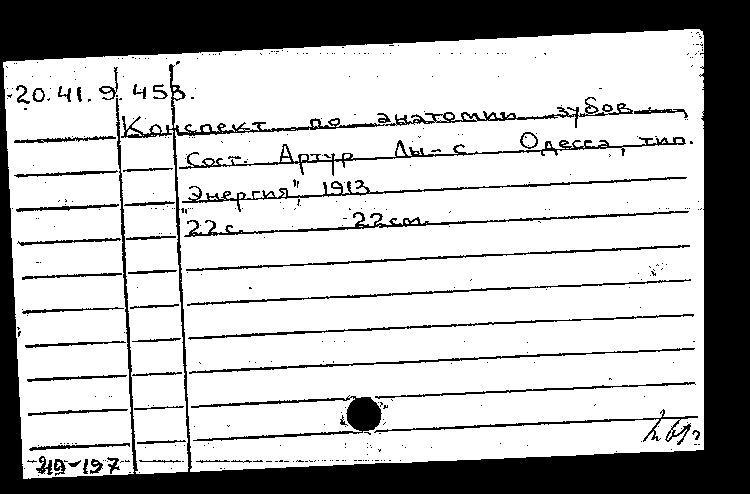 20.41.9.453.
Конспект по анатомии зубов.
Сост. Артур Лы-с. Одесса, тип.
"Энергия", 1913
22с. 22cm.
210-197